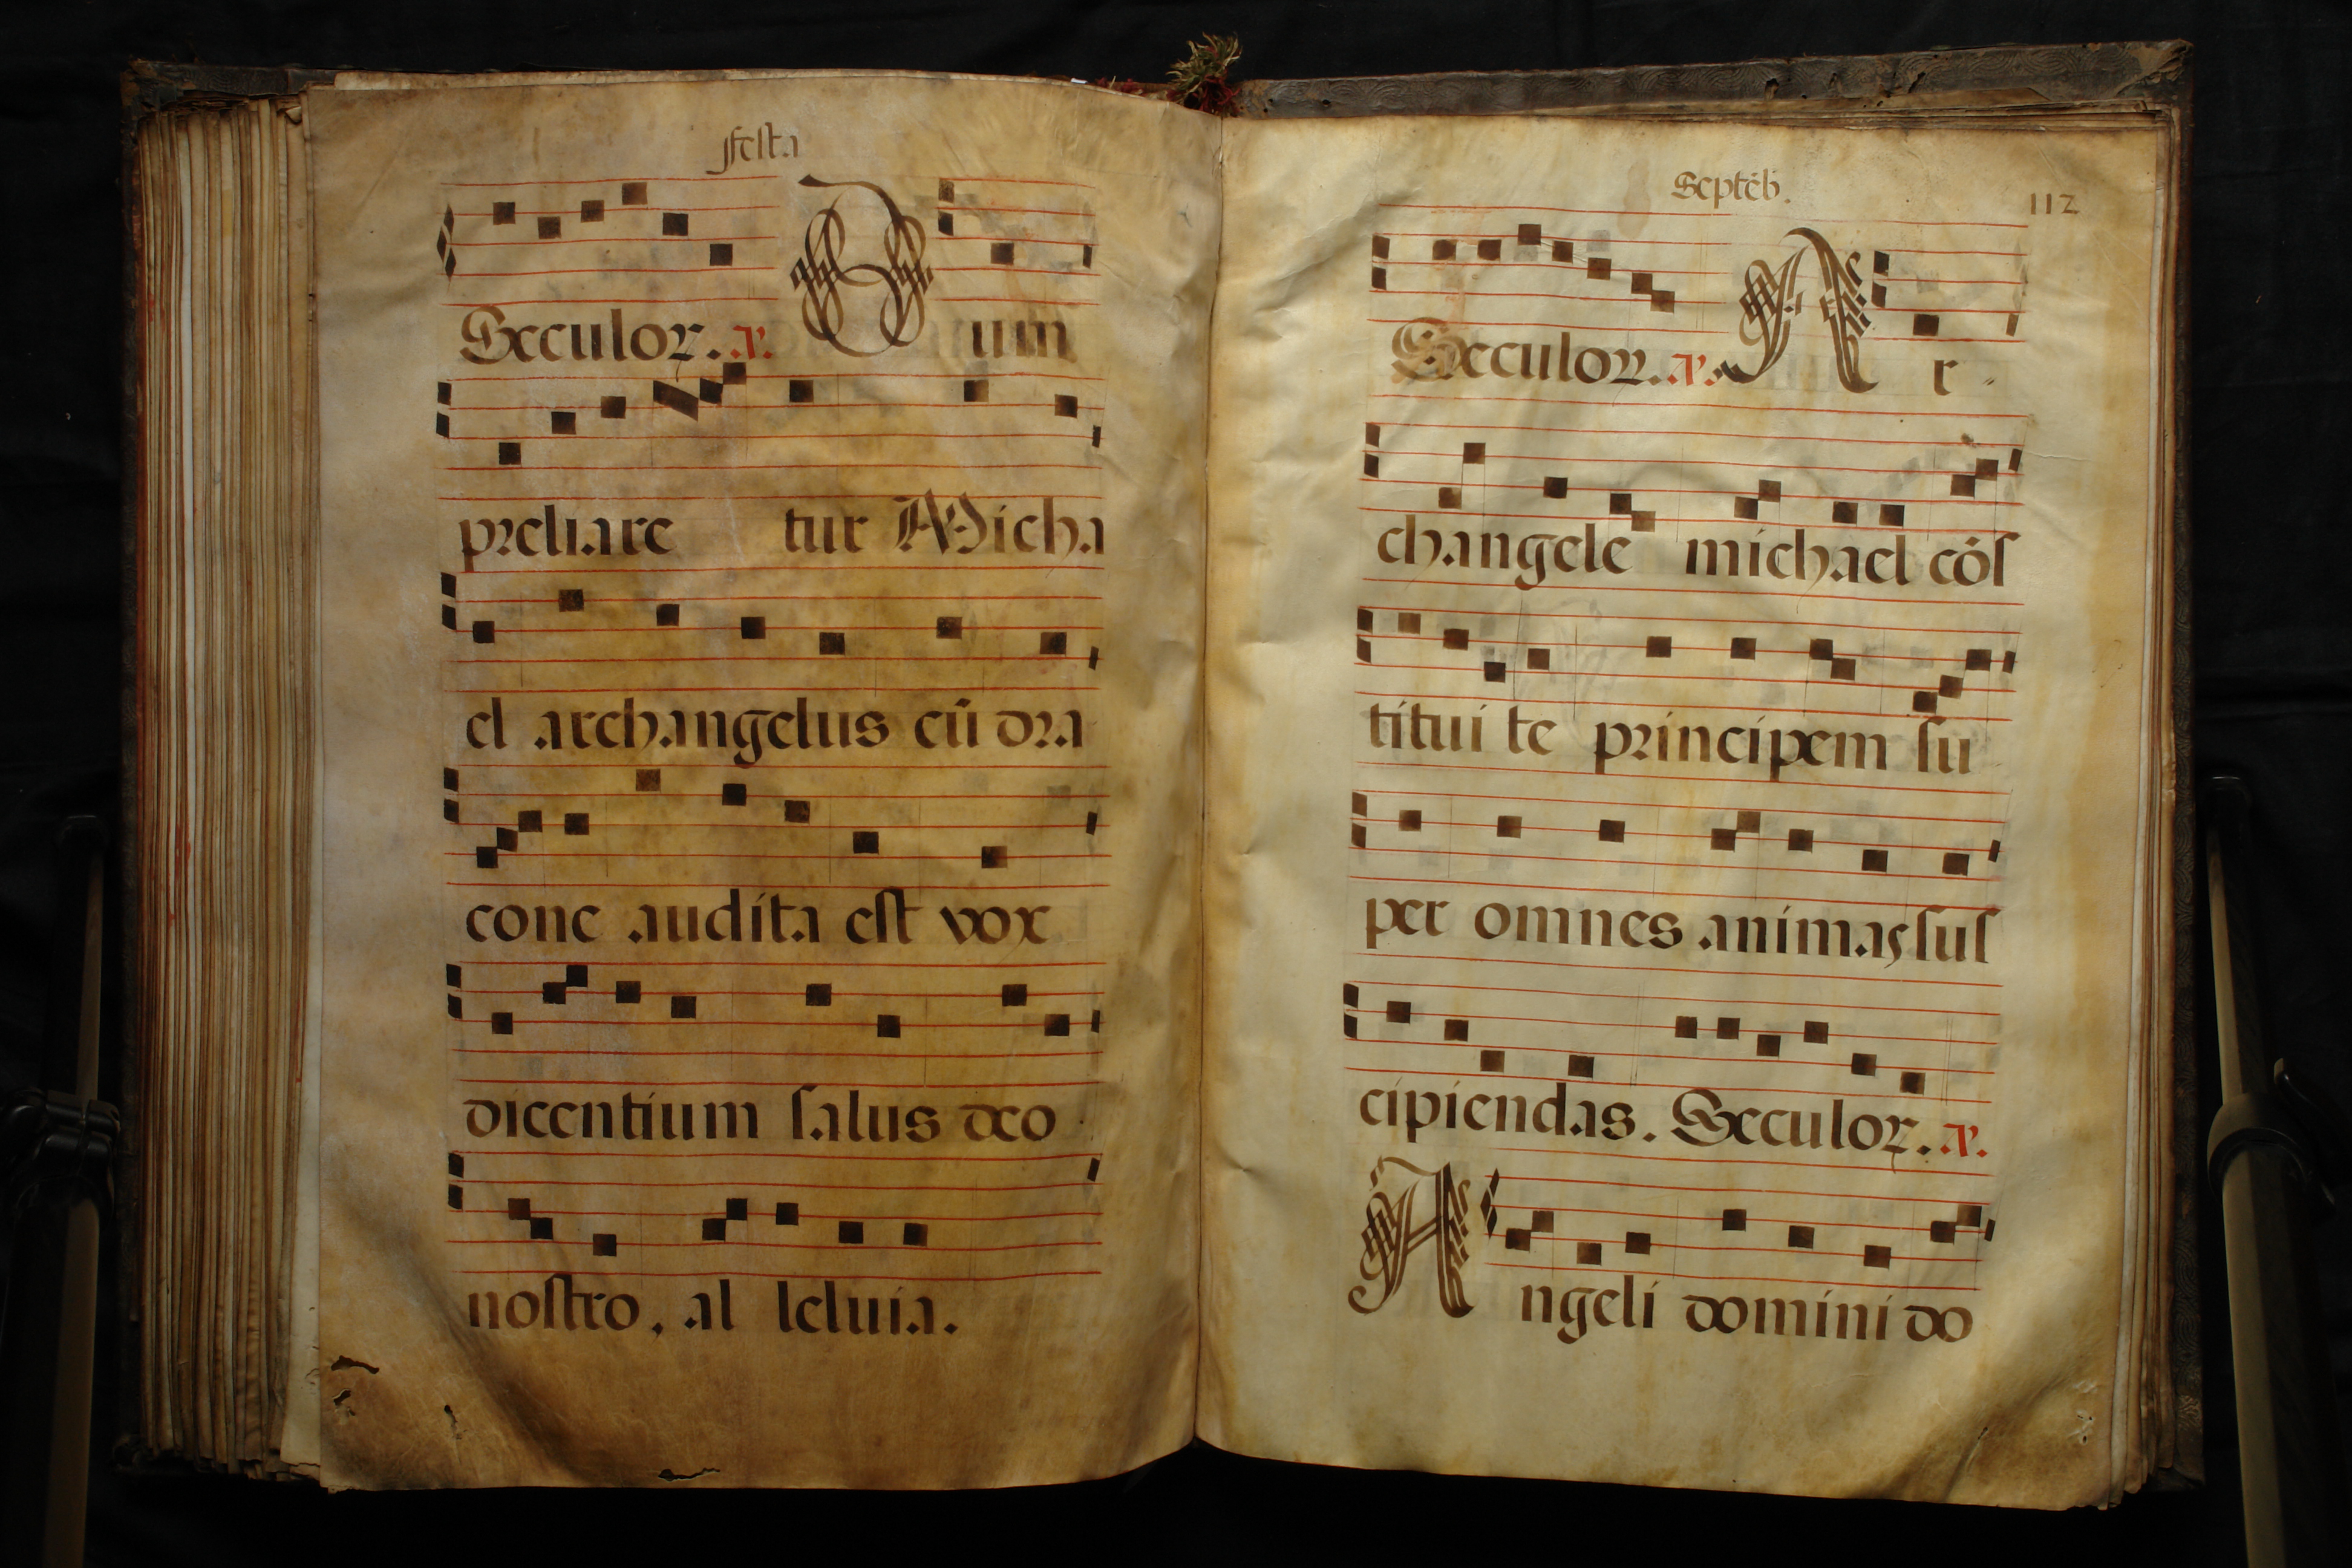 Festa
Sęculoꝝ. a. Dum
preliare tur Micha
el archangelus cū dra
cone audita est vox
dicentium salus deo
nostro, al leluia.
Septēb. 112
Sęculoꝝ. a. Ar-
changele michael cōs
titui te principem su
per omnes animas sus
cipiendas. Sęculoꝝ. a.
Angeli domini do